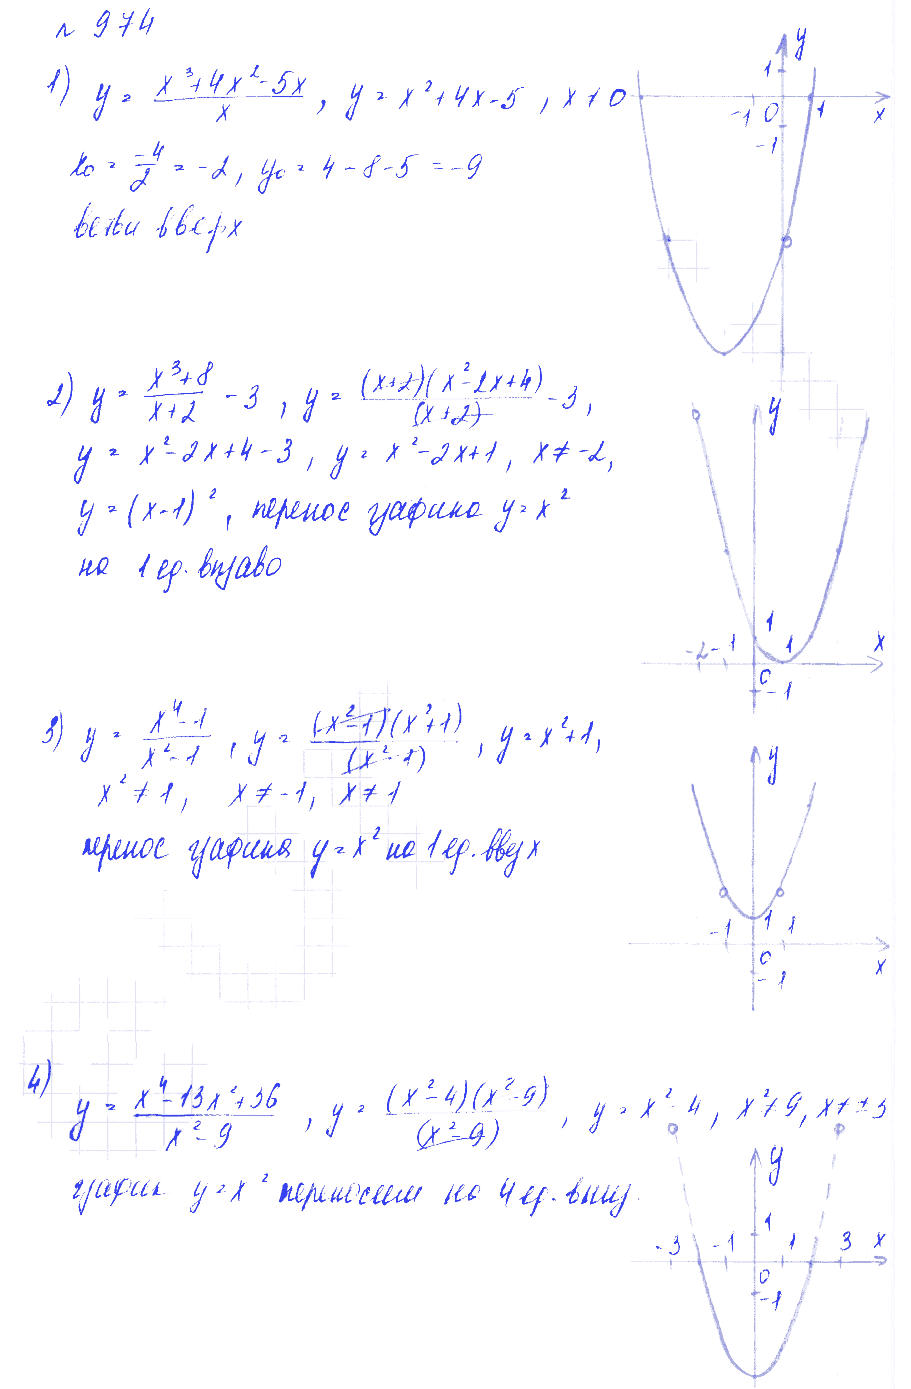 № 974
1) y = (x³+4x²-5x)/x , y = x²+4x-5 , x≠0
x₀ = -4/2 = -2, y₀ = 4-8-5 = -9
ветви вверх
y
1
-1 0 1 x
-1
2) y = (x³+8)/(x+2) - 3 , y = (x+2)(x²-2x+4)/(x+2) - 3,
y = x²-2x+4-3, y = x²-2x+1, x≠-2,
y = (x-1)², перенос графика y = x²
на 1 ед. вправо
y
1
-2 -1 1 x
0
-1
3) y = (x⁴-1)/(x²-1) , y = (x²-1)(x²+1)/(x²-1) , y = x²+1,
x²≠1, x≠-1, x≠1
перенос графика y = x² на 1 ед. вверх
y
1
-1 1
0 x
-1
4) y = (x⁴-13x²+36)/(x²-9) , y = (x²-4)(x²-9)/(x²-9) , y = x²-4, x²≠9, x≠±3
график y = x² переносим на 4 ед. вниз.
y
1
-3 -1 1 3 x
0
-1